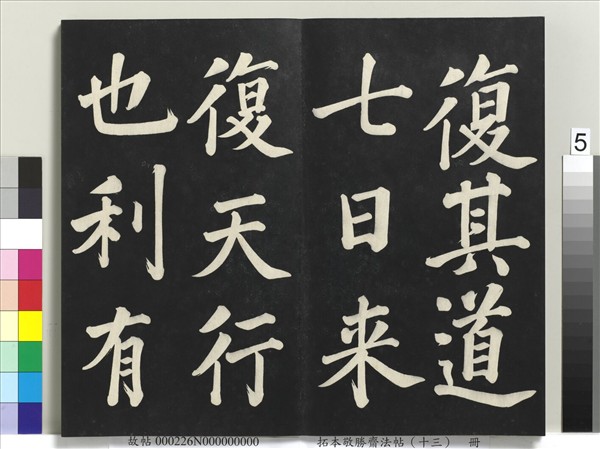 復其道
七日来
復天行
也利有
5
故帖 000226N000000000 拓本敬勝齋法帖（十三） 冊